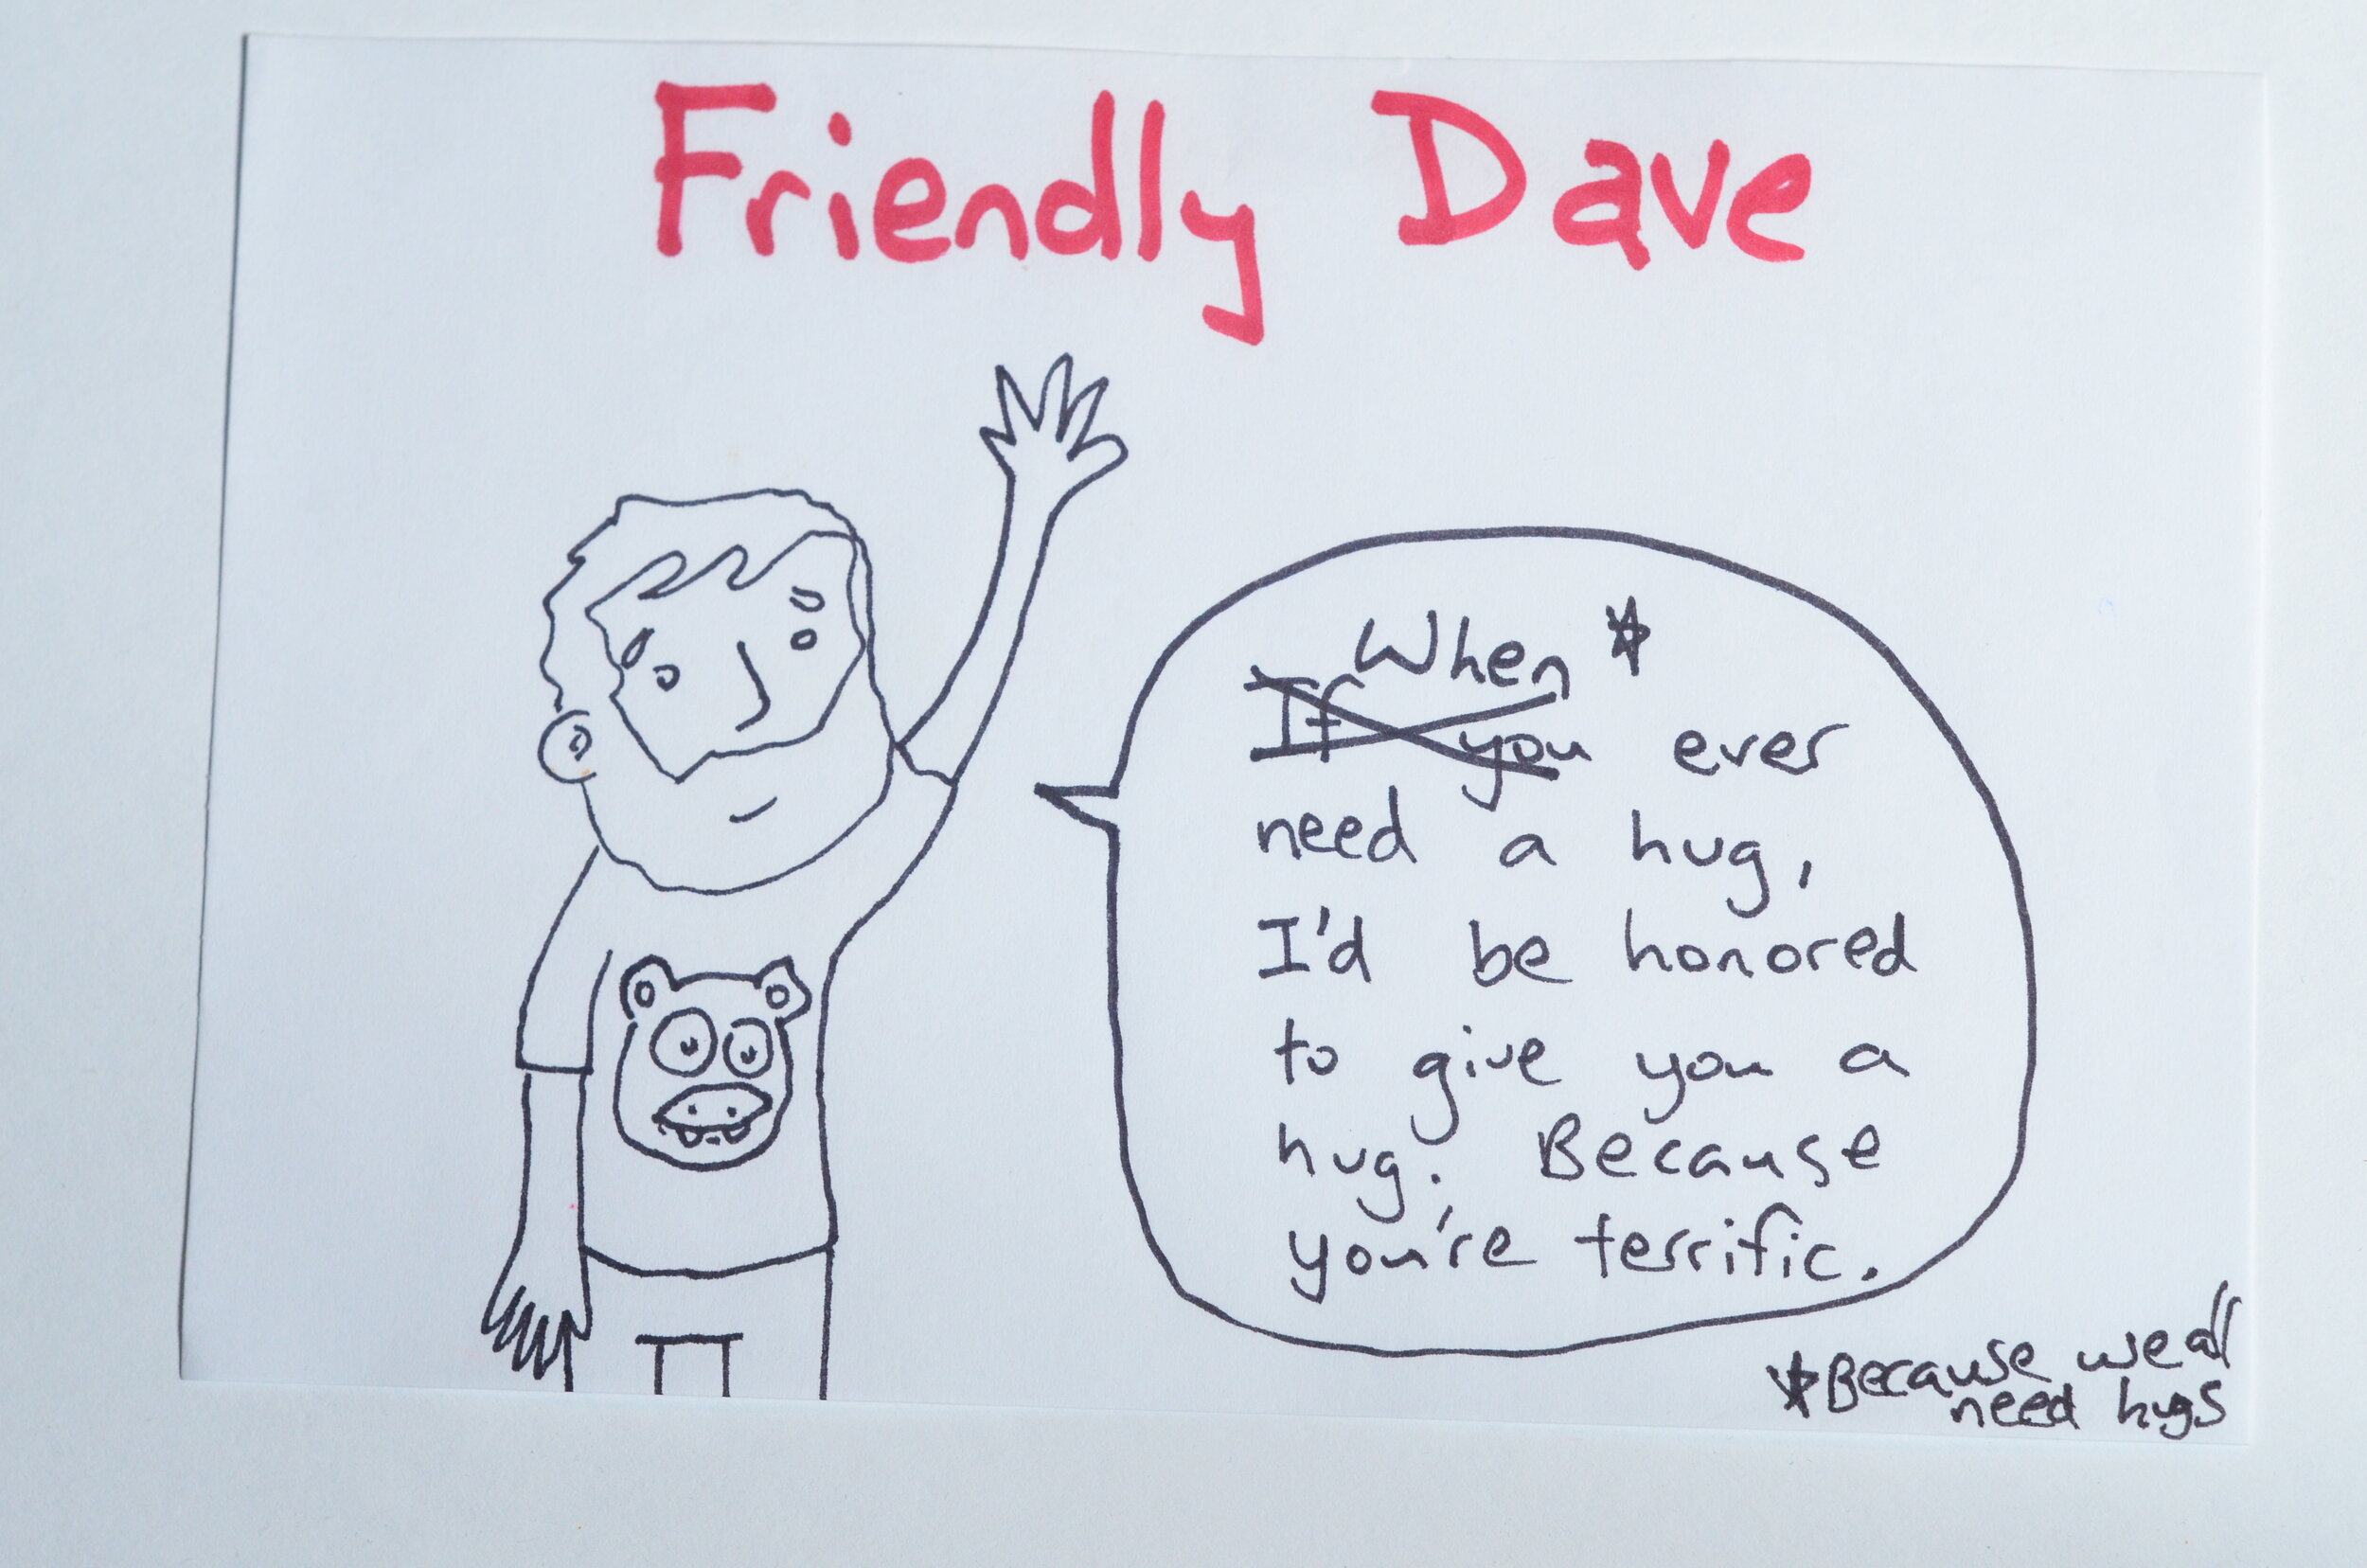 Friendly Dave
When *
If you ever
need a hug,
I'd be honored
to give you a
hug. Because
you're terrific.
*Because we all
need hugs